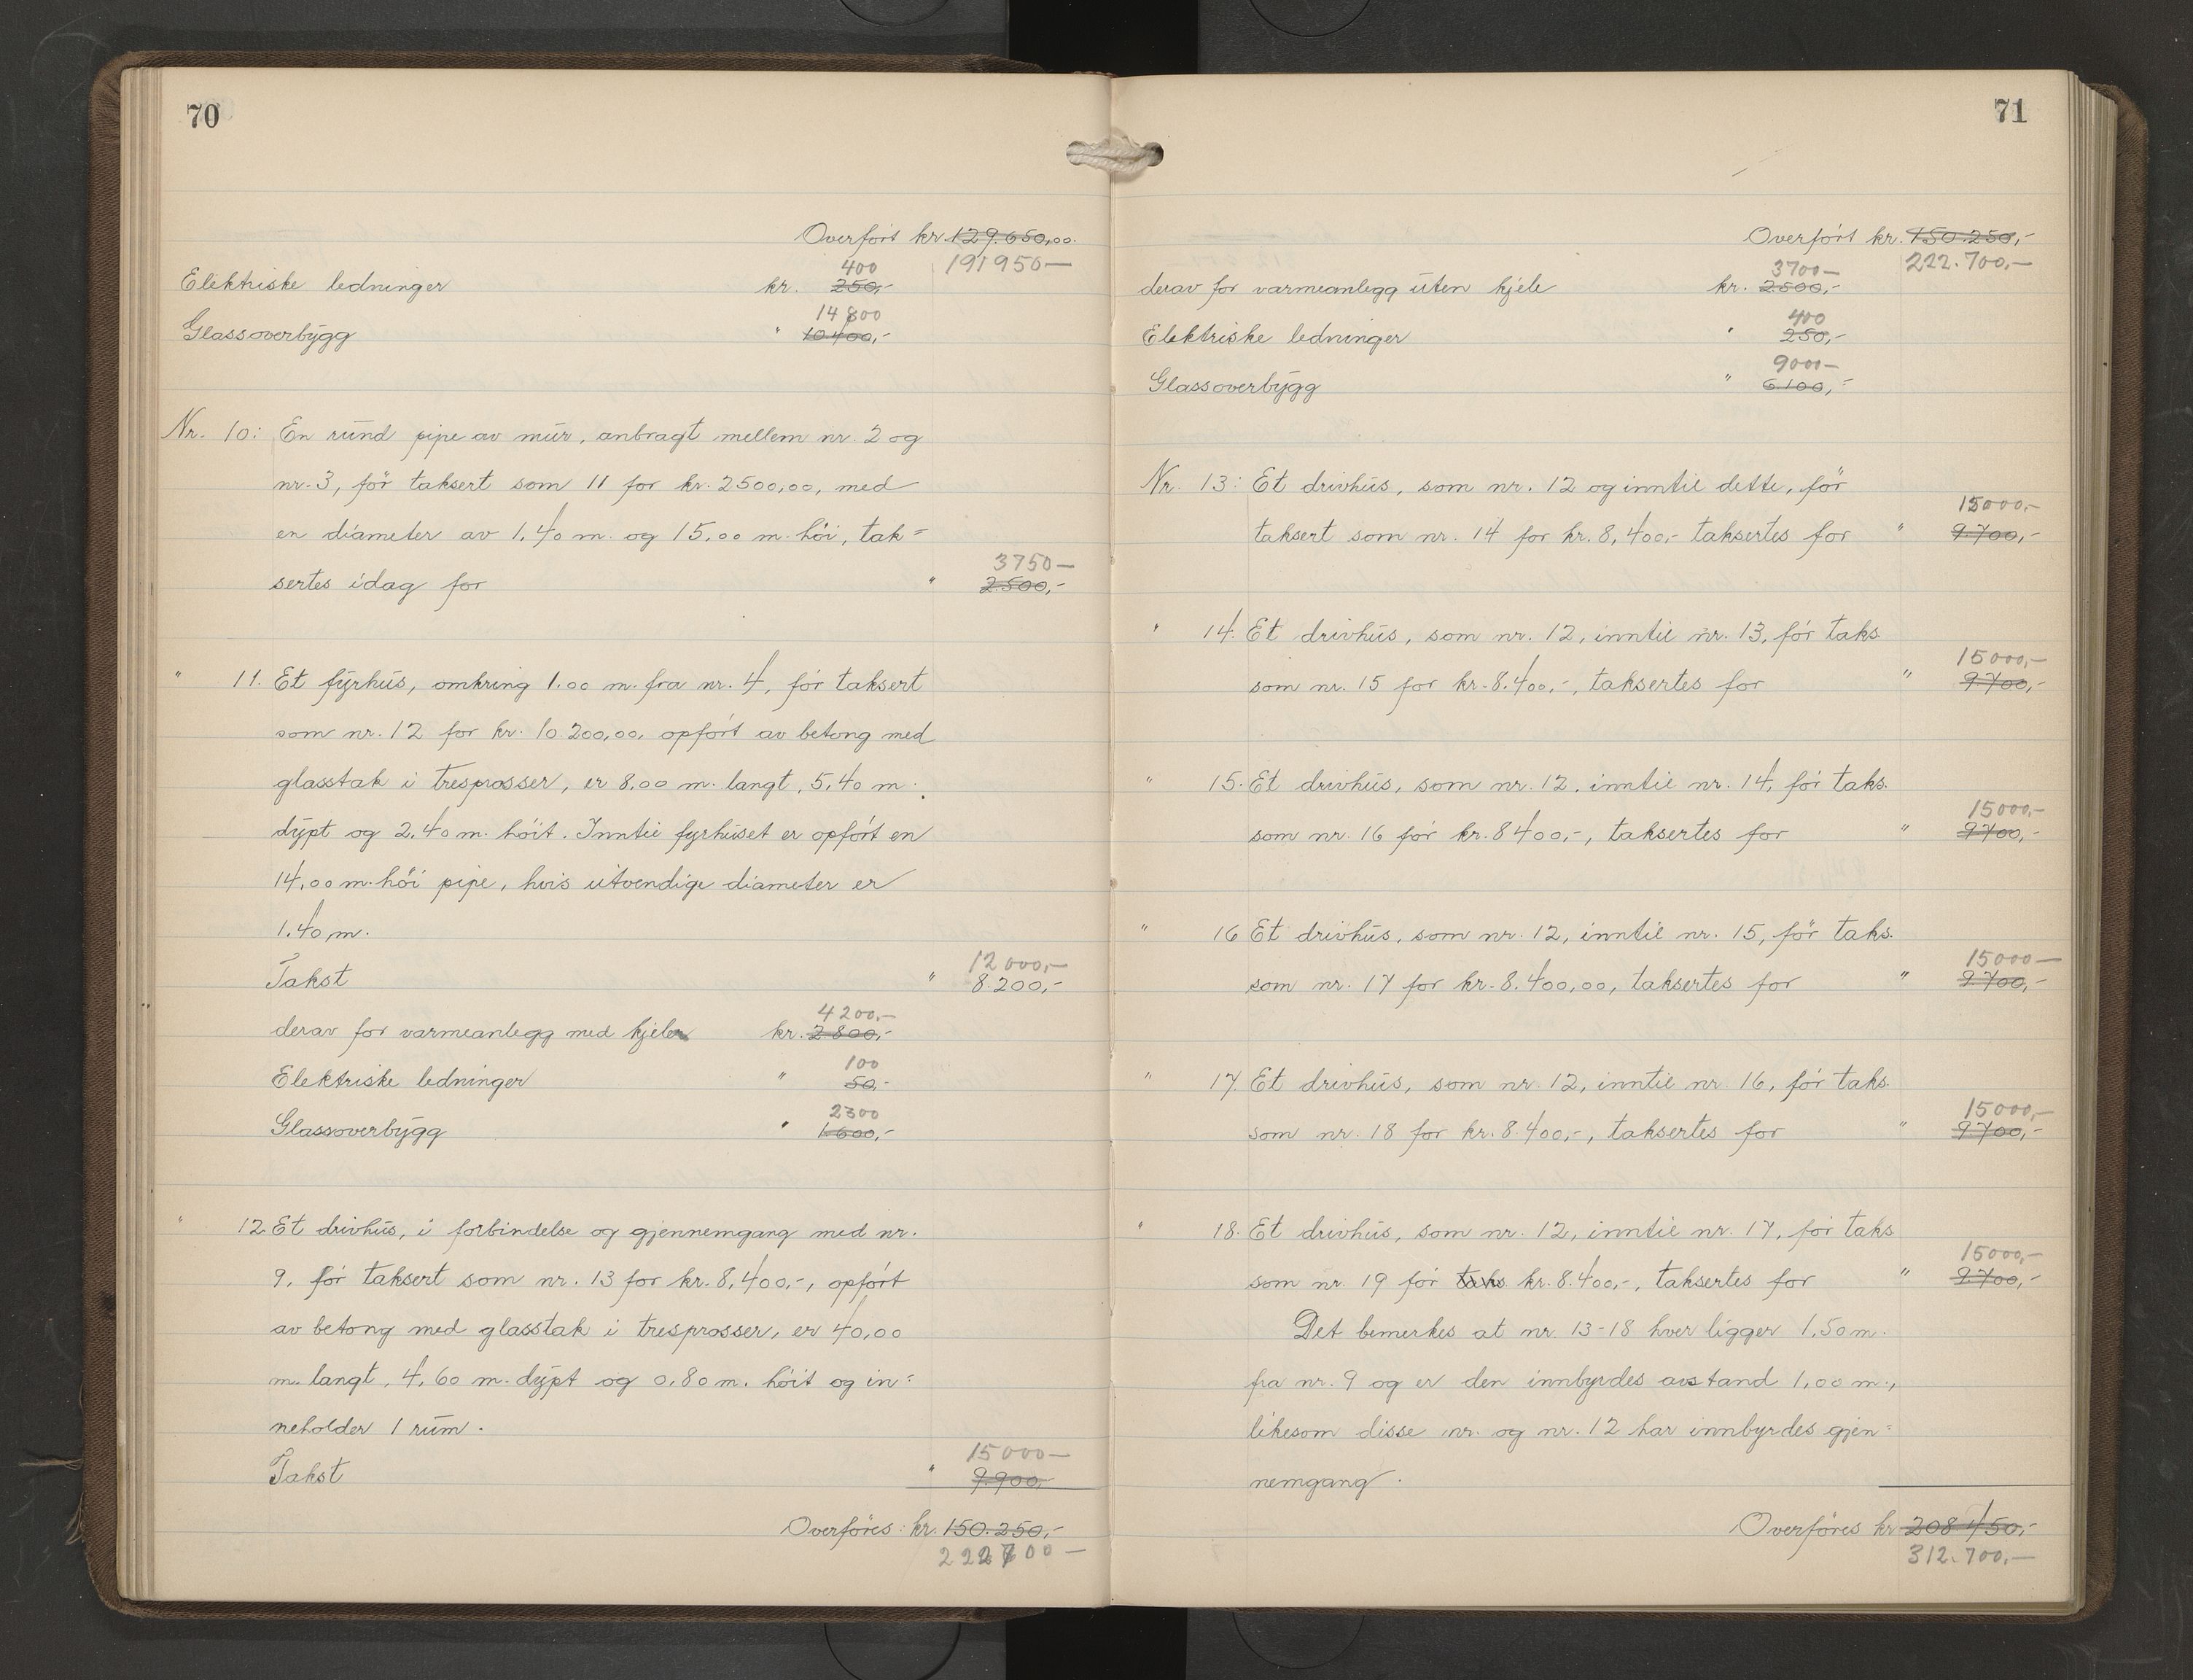 70
Overført kr. 129.650,00.
191950—
400
Elektriske ledninger kr. 250,-
14800
Glassoverbygg " 10.400,-
Nr. 10: En rund pipe av mur, anbragt mellem nr. 2 og
nr. 3, før taksert som 11 for kr. 2500,00, med
en diameter av 1,40 m. og 15,00 m. høi, tak=
3750—
sertes idag for " 2.500,-
" 11. Et fyrhus, omkring 1.00 m. fra nr. 4, før taksert
som nr. 12 for kr. 10.200,00, opført av betong med
glasstak i tresprosser, er 8,00 m. langt, 5,40 m.
dypt og 2,40 m. høit. Inntil fyrhuset er opført en
14,00 m. høi pipe, hvis utvendige diameter er
1,40 m.
12000,—
Takst " 8.200,-
4200,—
derav for varmeanlegg med kjeler kr. 2.800,-
100
Elektriske ledninger " 50,-
2300
Glassoverbygg " 1.600,-
" 12. Et drivhus, i forbindelse og gjennemgang med nr.
9, før taksert som nr. 13 for kr. 8,400,-, opført
av betong med glasstak i tresprosser, er 40,00
m. langt, 4,60 m. dypt og 0,80 m. høit og in=
neholder 1 rum.
15000—
Takst " 9.900,-
Overføres: kr. 150.250,-
222700—
71
Overført kr. 150.250,-
3700— 222.700,—
derav for varmeanlegg uten kjele kr. 2.500,-
400
Elektriske ledninger " 250,-
9000—
Glassoverbygg " 6.100,-
Nr. 13: Et drivhus, som nr. 12 og inntil dette, før
15000,—
taksert som nr. 14 for kr. 8,400,- taksertes for " 9.700,-
" 14. Et drivhus, som nr. 12, inntil nr. 13, før taks.
15000,—
som nr. 15 for kr. 8.400,-, taksertes for " 9.700,-
" 15. Et drivhus, som nr. 12, inntil nr. 14, før taks.
15000,—
som nr. 16 for kr. 8400,-, taksertes for " 9.700,-
" 16 Et drivhus, som nr. 12, inntil nr. 15, før taks.
15000—
som nr. 17 for kr. 8.400,00, taksertes for " 9.700,-
" 17. Et drivhus, som nr. 12, inntil nr. 16, før taks.
15000,—
som nr. 18 for kr. 8.400,-, taksertes for " 9.700,-
" 18. Et drivhus, som nr. 12, inntil nr. 17, før taks
15000,—
som nr. 19 for taks kr. 8.400,-, taksertes for " 9.700,-
Det bemerkes at nr. 13-18 hver ligger 1,50 m.
fra nr. 9 og er den innbyrdes avstand 1,00 m.,
likesom disse nr. og nr. 12 har innbyrdes gjen=
nemgang.
Overføres kr. 208.450,-
312.700,—